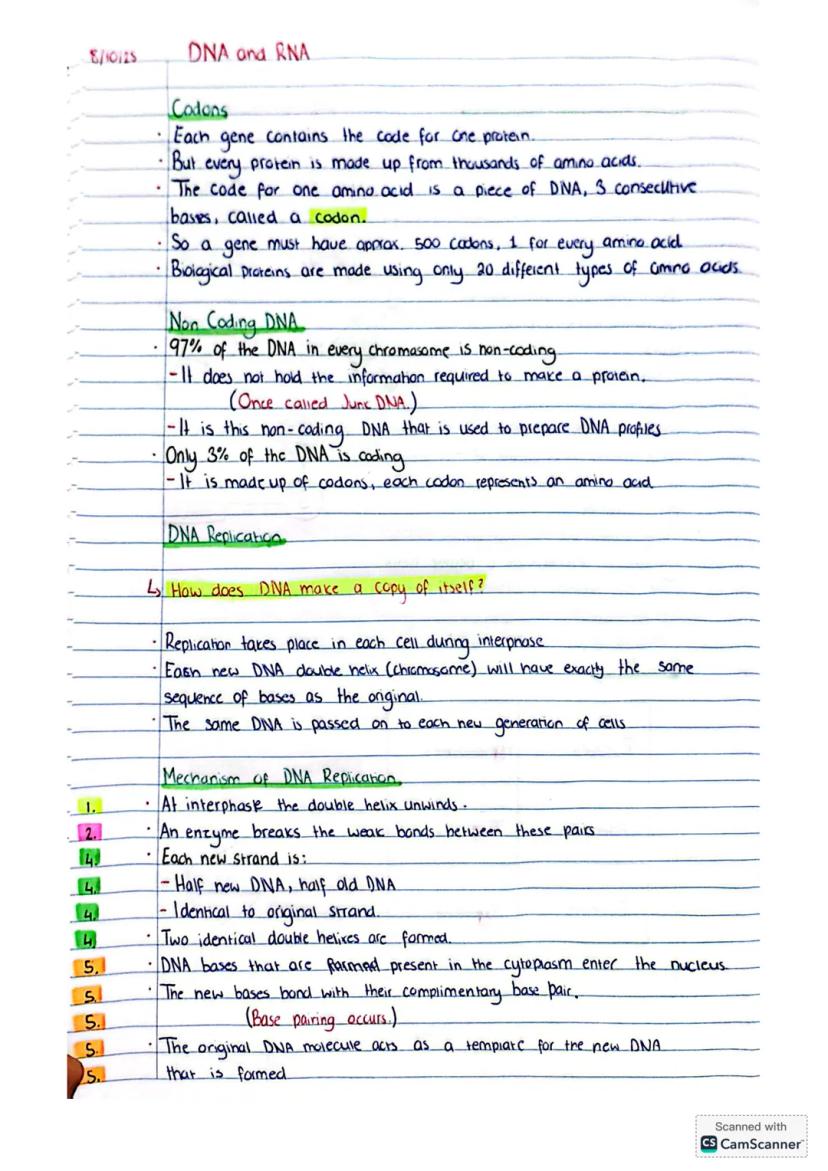 8/10/25 DNA and RNA
Codons
· Each gene contains the code for one protein.
· But every protein is made up from thousands of amino acids.
· The code for one amino acid is a piece of DNA, 3 consecutive
bases, called a codon.
· So a gene must have approx. 500 codons, 1 for every amino acid
· Biological proteins are made using only 20 different types of amino acids.
Non Coding DNA
· 97% of the DNA in every chromosome is non-coding
- It does not hold the information required to make a protein.
(Once called Junk DNA.)
- It is this non-coding DNA that is used to prepare DNA profiles
· Only 3% of the DNA is coding
- It is made up of codons, each codon represents an amino acid
DNA Replication
↳ How does DNA make a copy of itself?
· Replication takes place in each cell during interphase
· Each new DNA double helix (chromosome) will have exactly the same
sequence of bases as the original.
· The same DNA is passed on to each new generation of cells
Mechanism of DNA Replication
1. · At interphase the double helix unwinds.
2. · An enzyme breaks the weak bonds between these pairs
4. · Each new strand is:
4. - Half new DNA, half old DNA
4. - Identical to original strand.
4. · Two identical double helixes are formed.
5. · DNA bases that are formed present in the cytoplasm enter the nucleus.
5. · The new bases bond with their complimentary base pair.
5. (Base pairing occurs.)
5. · The original DNA molecule acts as a template for the new DNA
5. that is formed
Scanned with
CS CamScanner